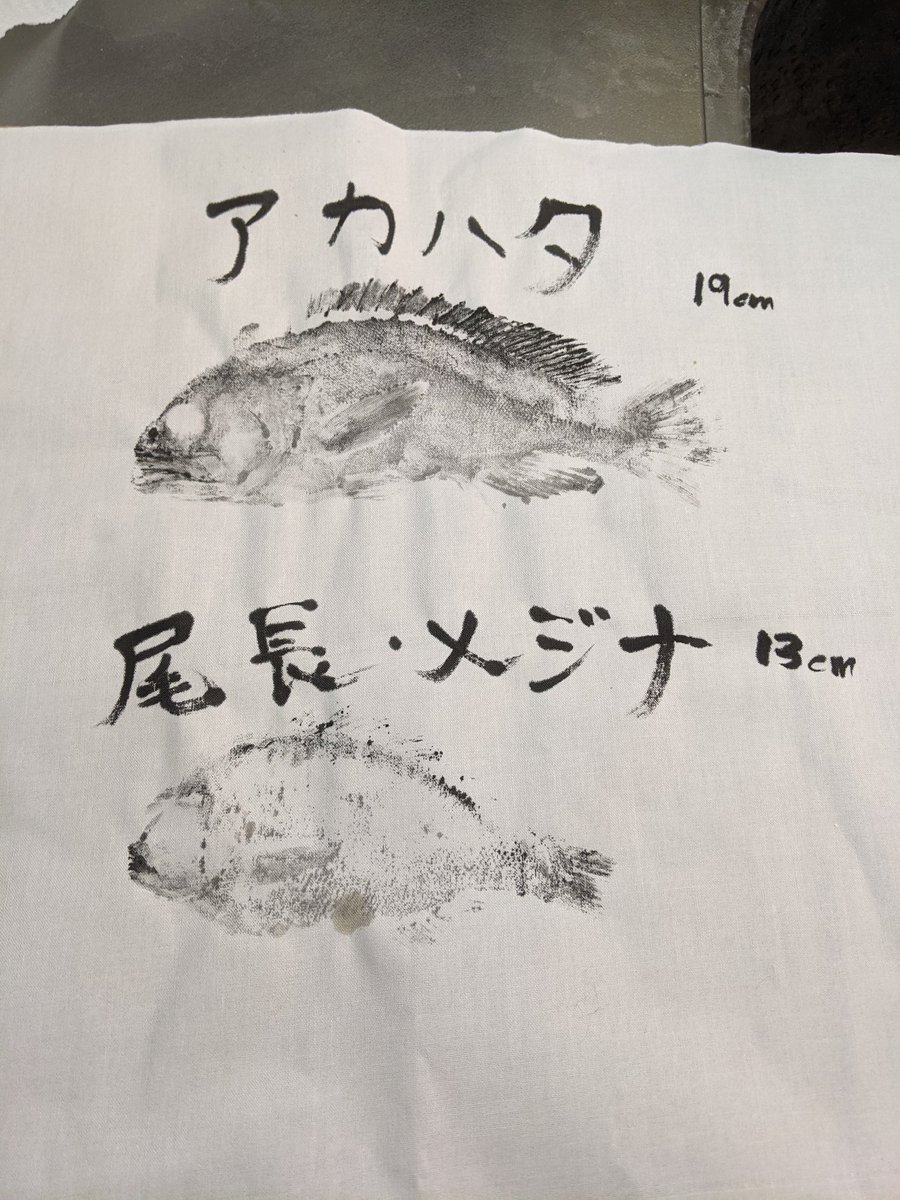 アカハタ
19cm
尾長・メジナ 13cm